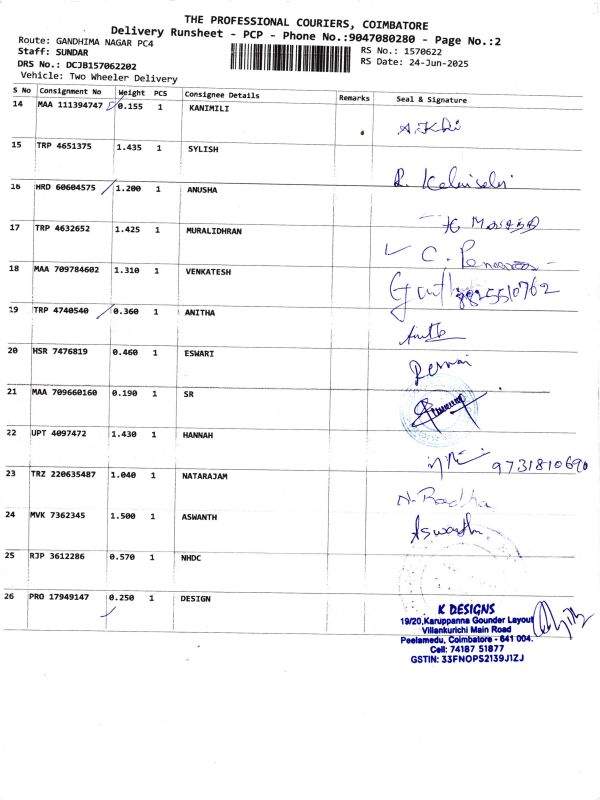 THE PROFESSIONAL COURIERS, COIMBATORE
Delivery Runsheet - PCP - Phone No.:9047080280 - Page No.:2
Route: GANDHIMA NAGAR PC4
RS No.: 1570622
Staff: SUNDAR
RS Date: 24-Jun-2025
DRS No.: DCJB157062202
Vehicle: Two Wheeler Delivery
S No Consignment No Weight PCS Consignee Details Remarks Seal & Signature
14 MAA 111394747 0.155 1 KANIMILI
15 TRP 4651375 1.435 1 SYLISH
16 HRD 60604575 1.200 1 ANUSHA
17 TRP 4632652 1.425 1 MURALIDHRAN
18 MAA 709784602 1.310 1 VENKATESH
19 TRP 4740540 0.360 1 ANITHA
20 HSR 7476819 0.460 1 ESWARI
21 MAA 709660160 0.190 1 SR
22 UPT 4097472 1.430 1 HANNAH
9731810690
23 TRZ 220635487 1.040 1 NATARAJAM
N. Radha
24 MVK 7362345 1.500 1 ASWANTH
Aswanth
25 RJP 3612286 0.570 1 NHDC
26 PRO 17949147 0.250 1 DESIGN
K DESIGNS
19/20,Karuppanna Gounder Layout
Villankurichi Main Road
Peelamedu, Coimbatore - 641 004.
Cell: 74187 51877
GSTIN: 33FNOPS2139J1ZJ